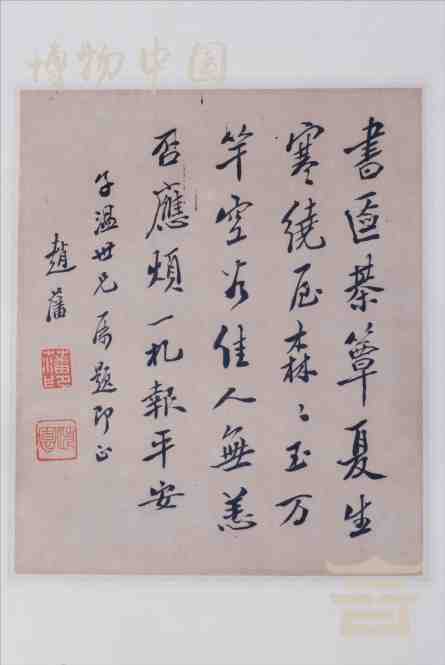 博物中国
書匳棊簟夏生
寒繞屋森〻玉万
竿空谷佳人無恙
否應煩一札報平安
子温世兄属題即正
趙藩